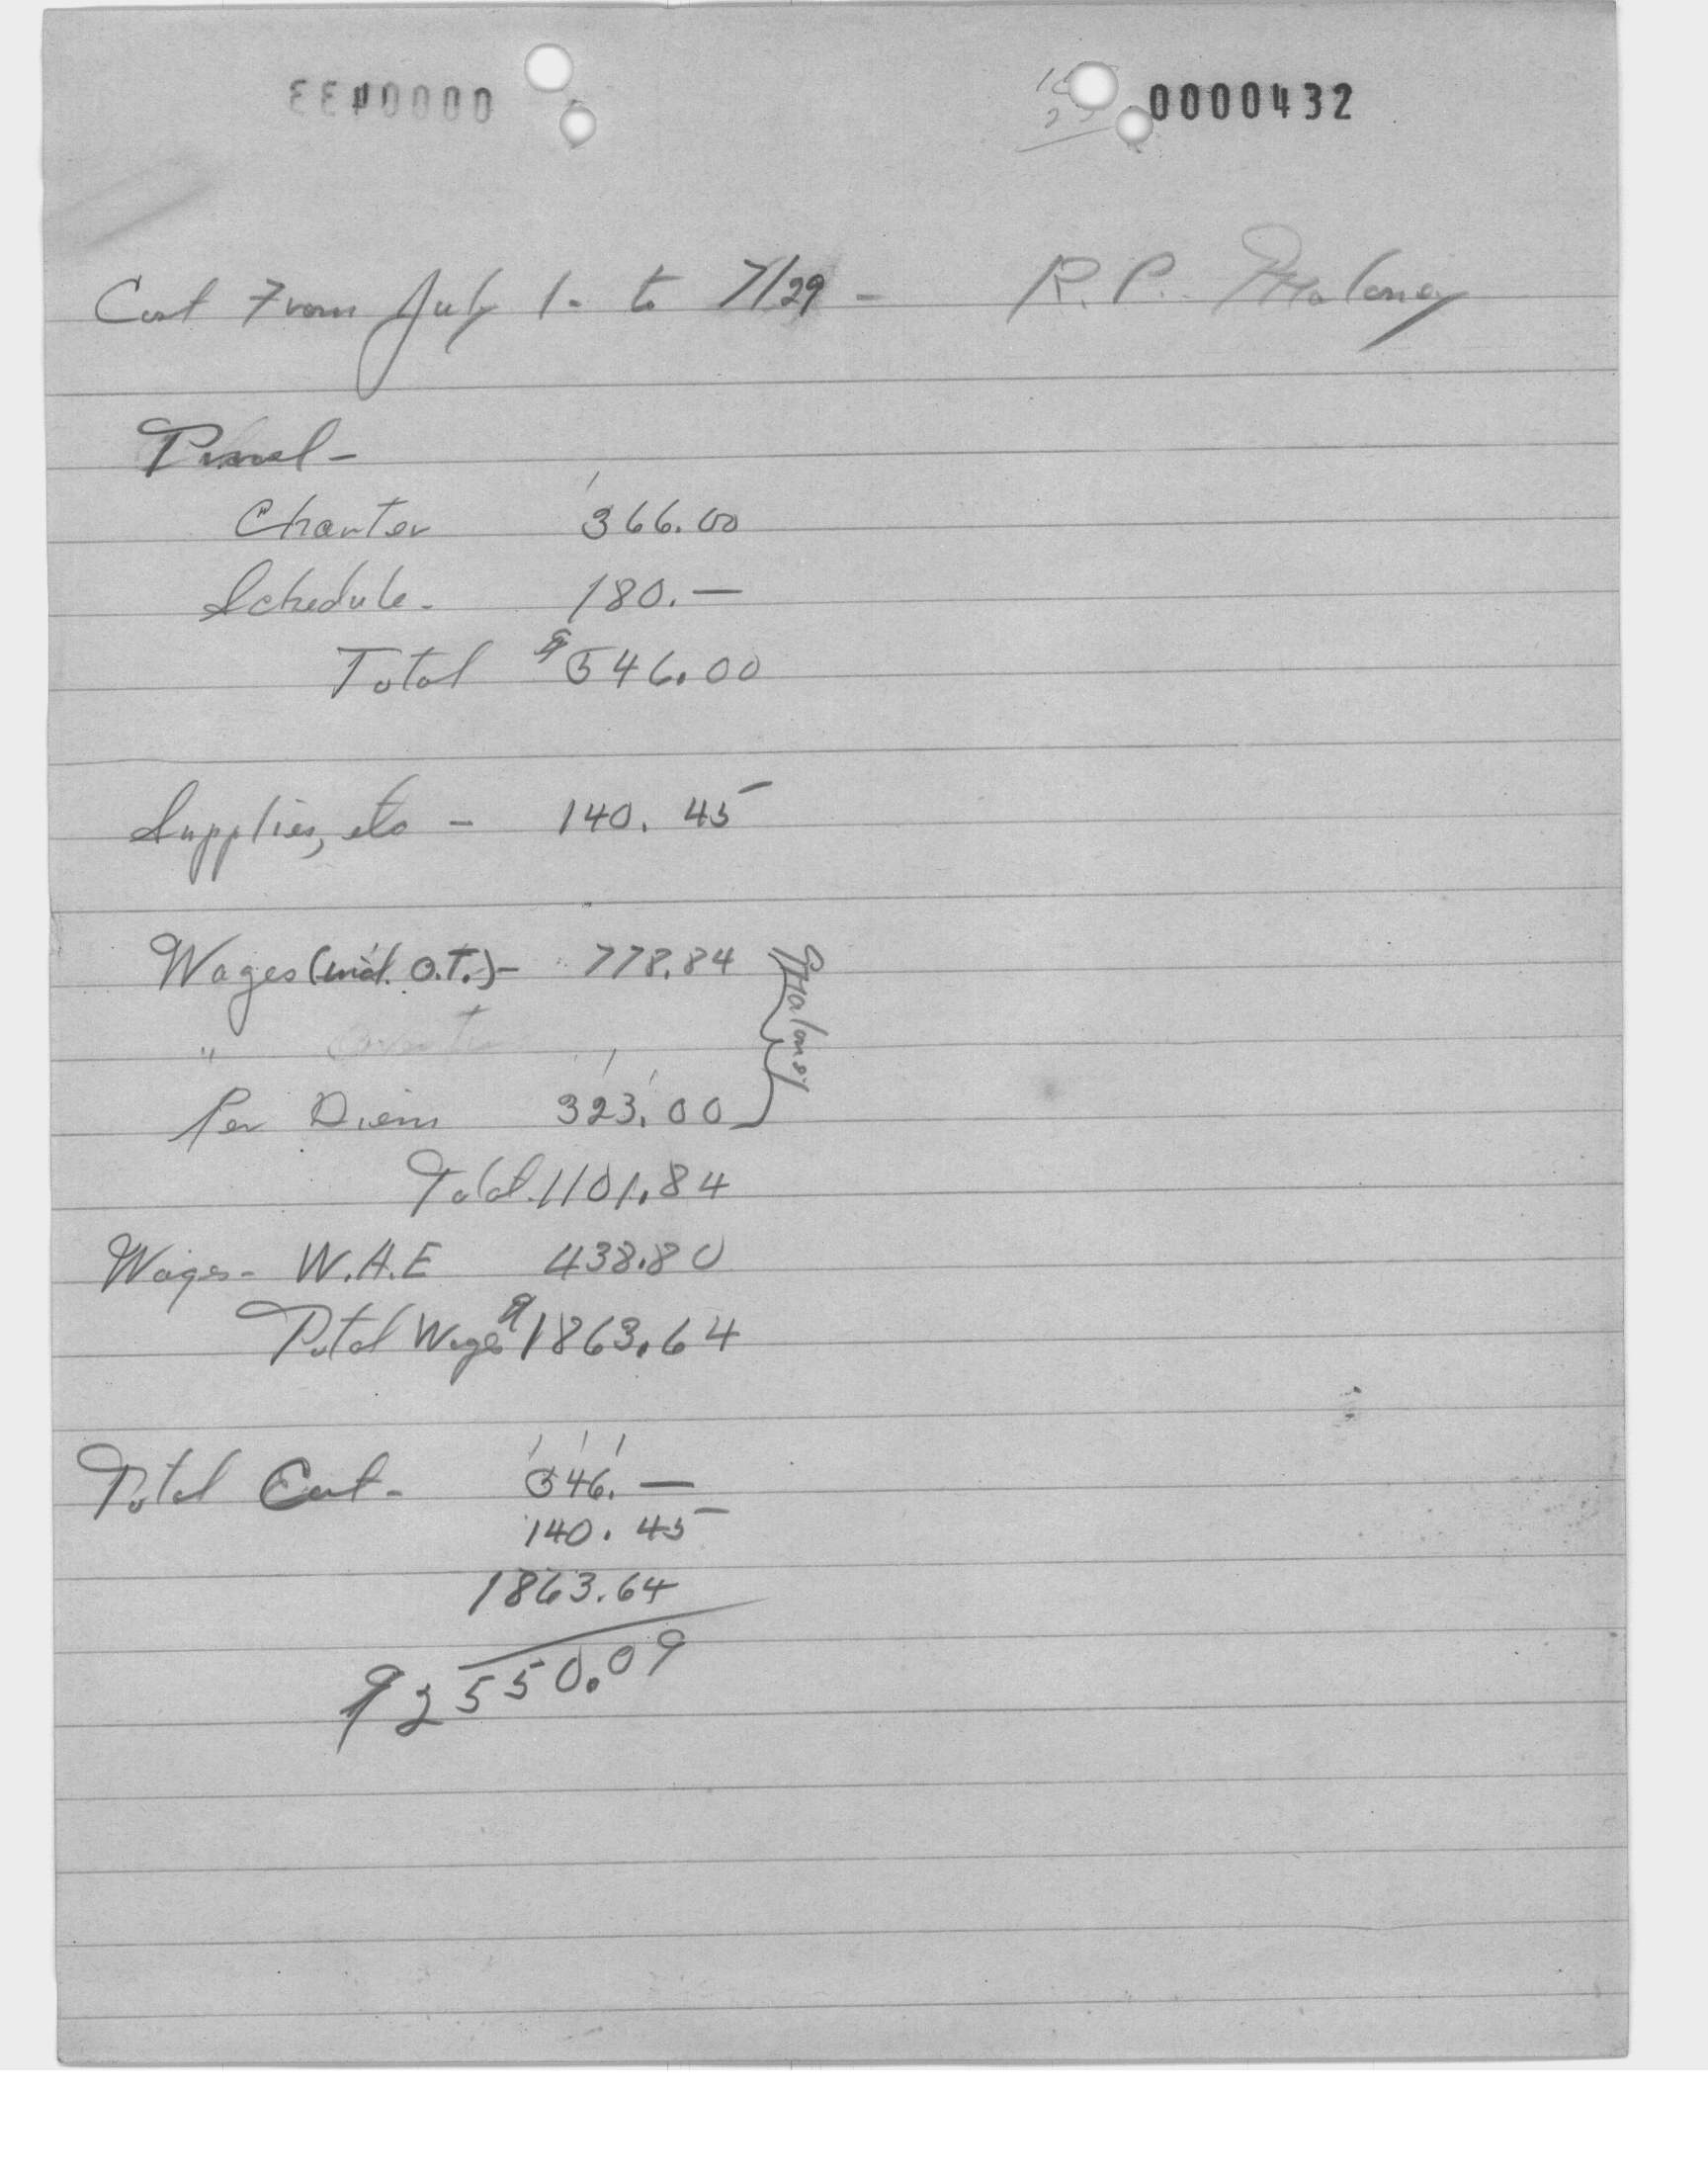 0000433
0000432
Cost From July 1- to 7/29 - R.P. Maloney
Travel -
Charter 366.00
Schedule - 180.—
Total $546.00
Supplies, etc - 140.45
Wages (incl. O.T.) - 778.84
"
Per Diem 323.00
Maloney
Total 1101.84
Wages - W.A.E 438.80
Total Wages $1863.64
Total Cost - 546.—
140.45
1863.64
$2550.09